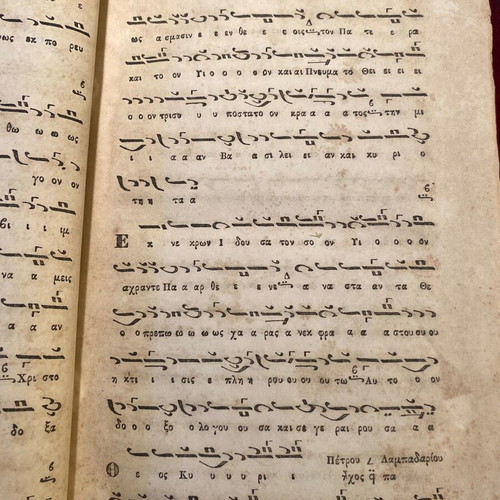 νως εκ πο ρευ
θω ω ω ως
γο ον ον
βι ι ι ιμ
να α μεις
α α αν
Χρι στο
δο ξα
ως α σμασιν ε ε εν θε ε ε οις τον Πα τε ε ρα
και το ον Υι ο ο ο ον και αι Πνευμα το Θει ει ει ει
ο ο ον τρισυ υ υ ποστατο ον κρα α α α τος την μι
ι ι α α αν Βα α σι λει ει αν και κυ ρι ο
τη η τα α
Ε κ νε κρων Ι δου σα τον σο ον Υι ο ο ο ον
αχραντε Πα α αρ θε ε ε νε α να στα αν τα Θε
ο ο πρεπω ω ω ω ως χα α ρας α νεκ φρα α α α στου ου ου
η κτι ι ι σις ε πλη η ρου ου ου ου τω Αυ τ ο ο ον
δο ο ο ξο ο λο γου ου σα και σε γε ραι ρου σα α α
Πέτρου Λαμπαδαρίου
Θ ε ος Κυ υ υ υ ρι ι ἦχος πα